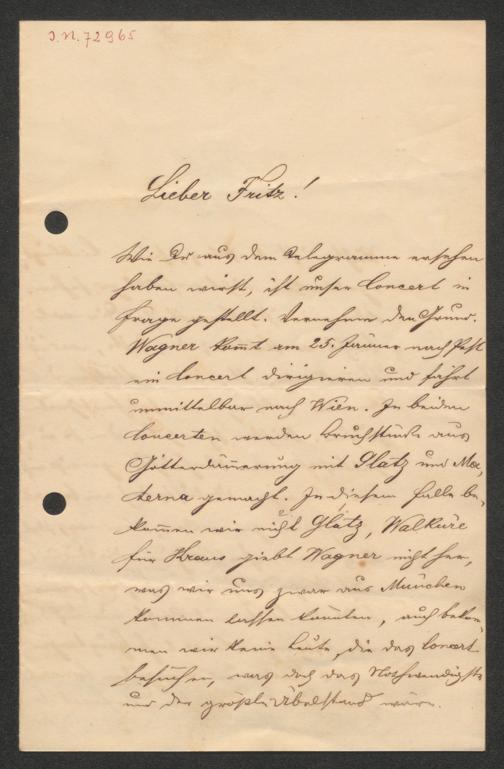 I. N. 72965
Lieber Fritz!
Wie Du aus dem Telegramme ersehen
haben wirst, ist unser Concert in
Frage gestellt. Vernehme den Grund.
Wagner kom̄t am 25. Jänner nach Pest
ein Concert dirigieren und fährt
unmittelbar nach Wien. In beiden
Concerten werden Bruchstücke aus
Götterdäm̄erung mit Glatz und Ma-
terna gemacht. In diesem Falle be-
kom̄en wir nicht Glatz, Walküre
für Kraus giebt Wagner nicht her,
was wir uns zwar aus München
kommen lassen kön̄ten, auch bekom-
men wir keine Leute, die das Concert
besuchen, was doch das Nothwendigste
und der größte Übelstand wäre.